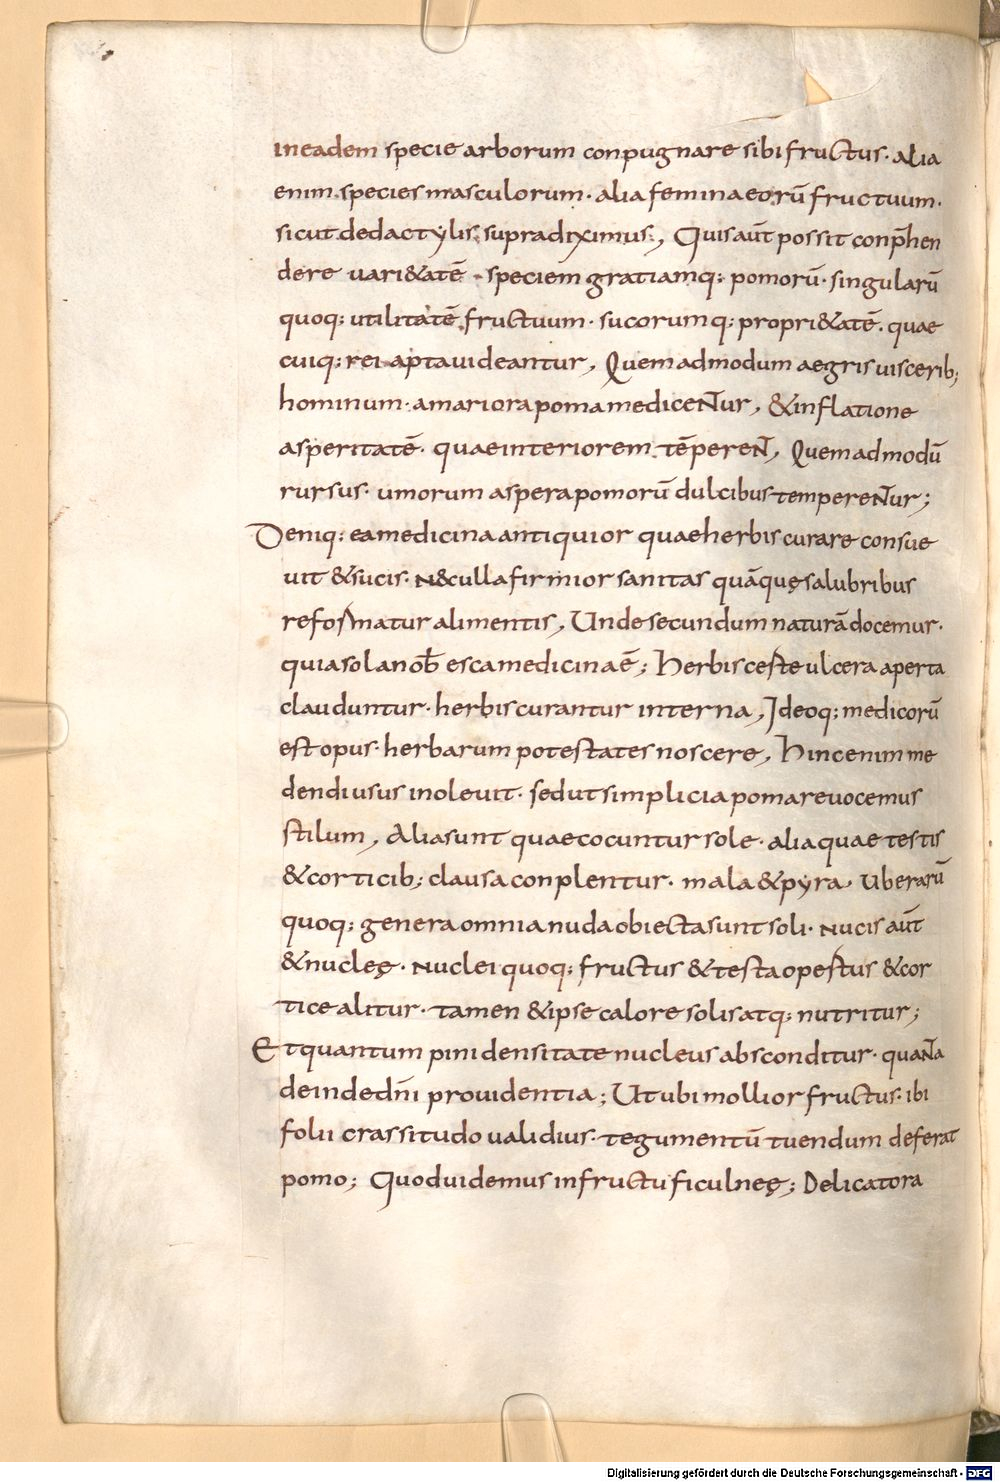 in eadem specie arborum conpugnare sibi fructus · alia
enim species masculorum · alia feminaeorū fructuum ·
sicut de dactylis supra diximus, Quis aut̄ possit conp̄hen
dere vari&atē speciem gratiamq; pomorū · singularū
quoq; utilitatē fructuum · sucorumq; propri&atē · quae
cuiq; rei apta uideantur, Quemadmodum aegris uiscerib;
hominum · amariora poma medicentur, & inflatione
asperitatē · quae interiorem tēperent, Quemadmodū
rursus · umorum aspera pomorū dulcibus temperentur;
Deniq; ea medicina antiquior quae herbis curare consue
uit & sucis · N& culla firmior sanitas quā quę salubribus
reformatur alimentis, Unde secundum naturā docemur ·
quia sola nob̄ esca medicina ē; Herbis certe ulcera aperta
clauduntur · herbis curantur interna, Ideoq; medicorū
est opus · herbarum potestates noscere, Hinc enim me
dendi usus inoleuit · sed ut simplicia poma reuocemus
stilum, Alia sunt quae cocuntur sole · alia quae testis
& corticib; clausa conplentur · mala & pyra · Uberarū
quoq; genera omnia nuda obiecta sunt soli · Nucis aut̄
& nucleę · Nuclei quoq; fructus & testa opertus & cor
tice alitur · tamen & ipse calore solis atq; nutritur;
Et quantum pini densitate nucleus absconditur · quanta
deinde dn̄i prouidentia; Ut ubi mollior fructus · ibi
folii crassitudo ualidius · tegumentū tuendum deferat
pomo; Quod uidemus in fructu ficulneę; Delicatora
Digitalisierung gefördert durch die Deutsche Forschungsgemeinschaft - DFG